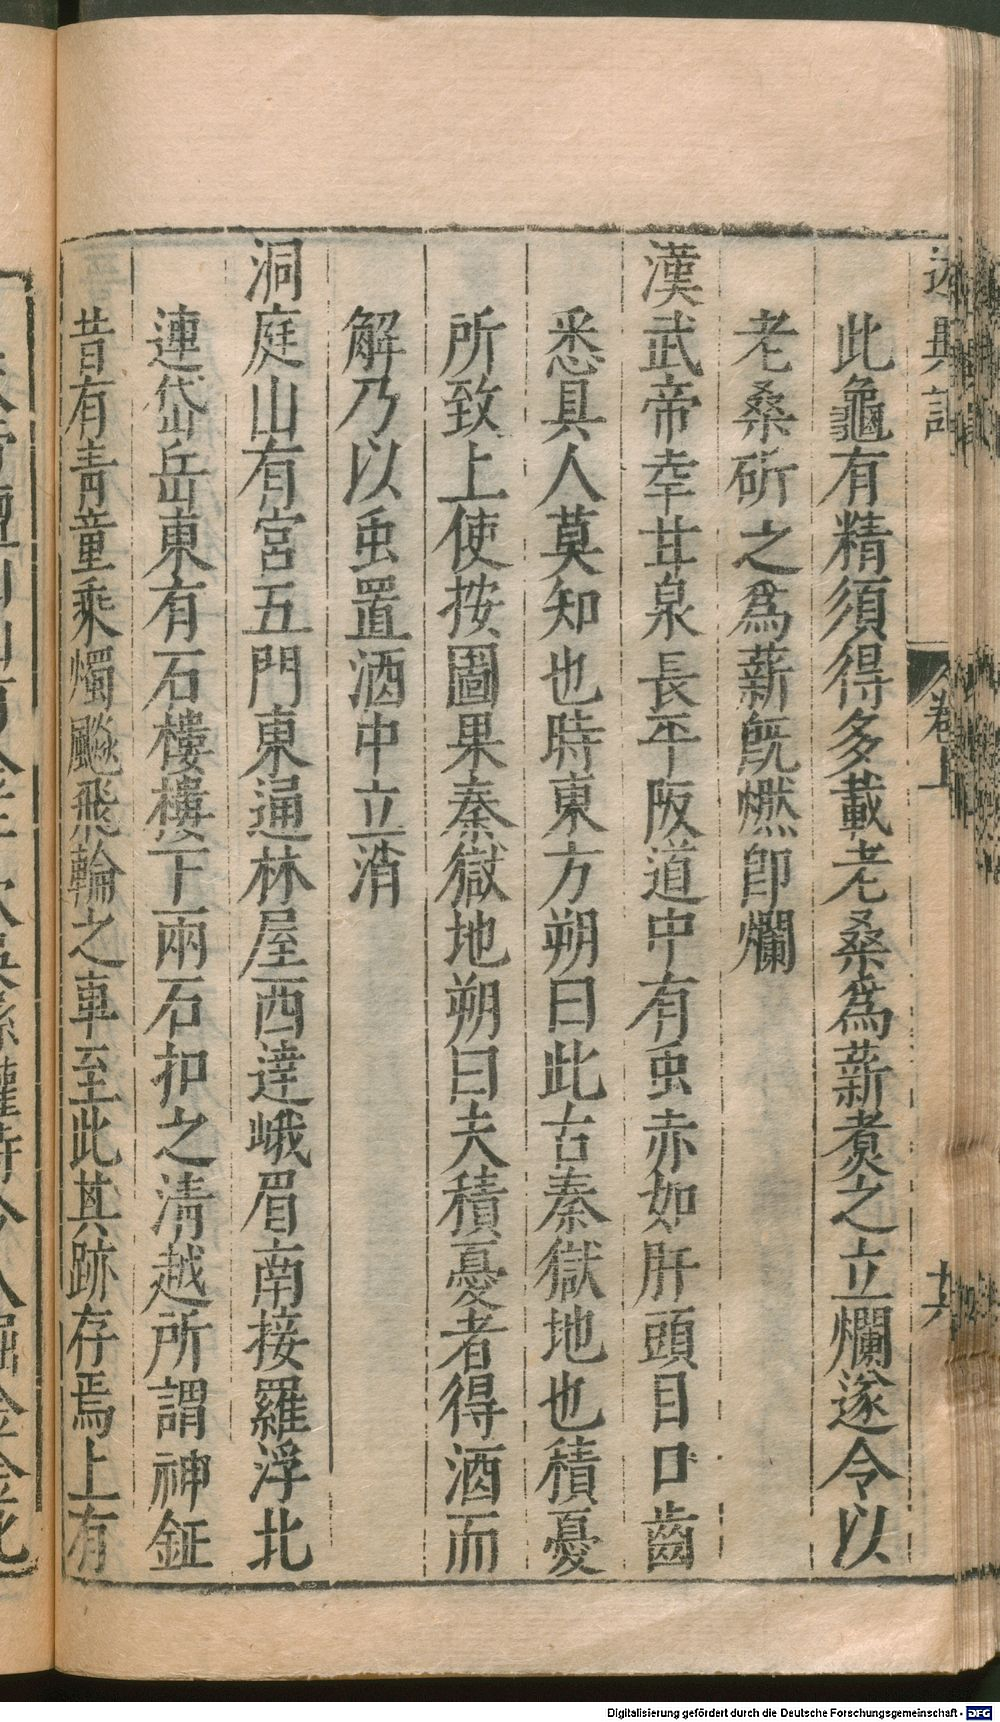 述異記
卷上
此龜有精須得多載老桑爲薪煑之立爛遂令以
老桑斫之爲薪旣燃卽爛
漢武帝幸甘泉長平阪道中有虫赤如肝頭目口齒
悉具人莫知也時東方朔曰此古秦獄地也積憂
所致上使按圖果秦獄地朔曰夫積憂者得酒而
解乃以虫置酒中立消
洞庭山有宮五門東通林屋西達峨眉南接羅浮北
連岱岳東有石樓樓下兩石扣之清越所謂神鉦
昔有青童乘燭飈飛輪之車至此其跡存焉上有
Digitalisierung gefördert durch die Deutsche Forschungsgemeinschaft - DFG